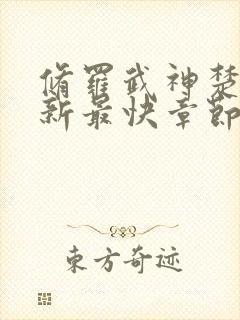 脩羅武神楚
新最快章節
東方奇迹